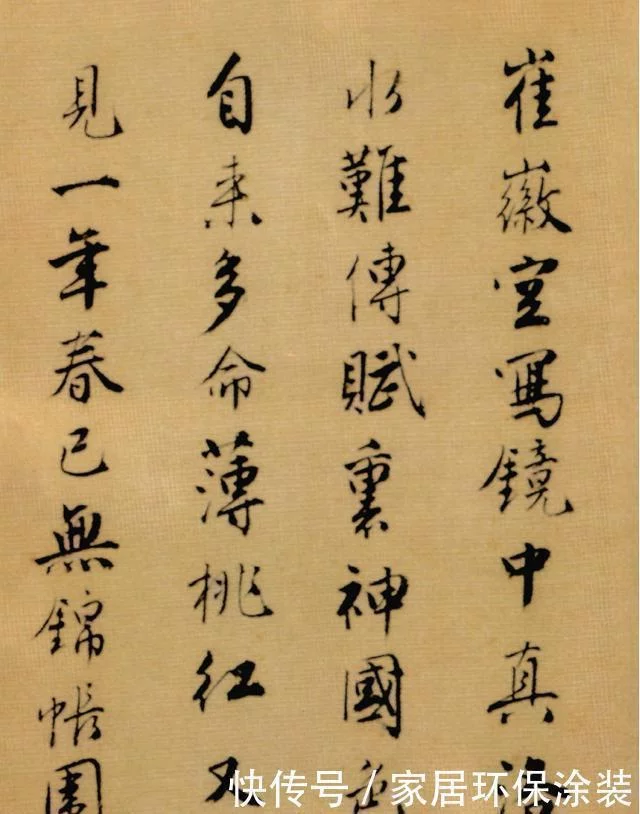 崔徽空寫鏡中真洛
水難傳賦裏神國色
自来多命薄桃紅又
見一年春已無錦帳圍
快传号 / 家居环保涂装